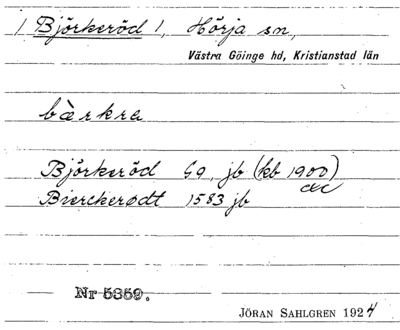 / Björkeröd /, Hörja sn,
Västra Göinge hd, Kristianstad län
bærkra
Björkeröd G9, jb (kb 1900)
Bierckerødt 1583 jb
Nr 5359.
JÖRAN SAHLGREN 1924